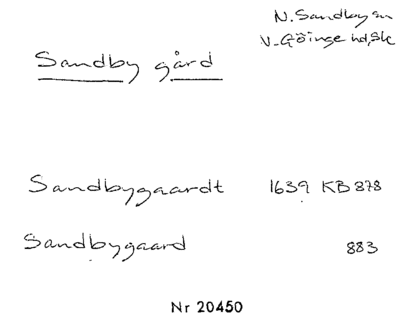 N. Sandby sn
V. Göinge hd, Sk
Sandby gård
Sandbygaardt 1639 KB 878
Sandbygaard 883
Nr 20450